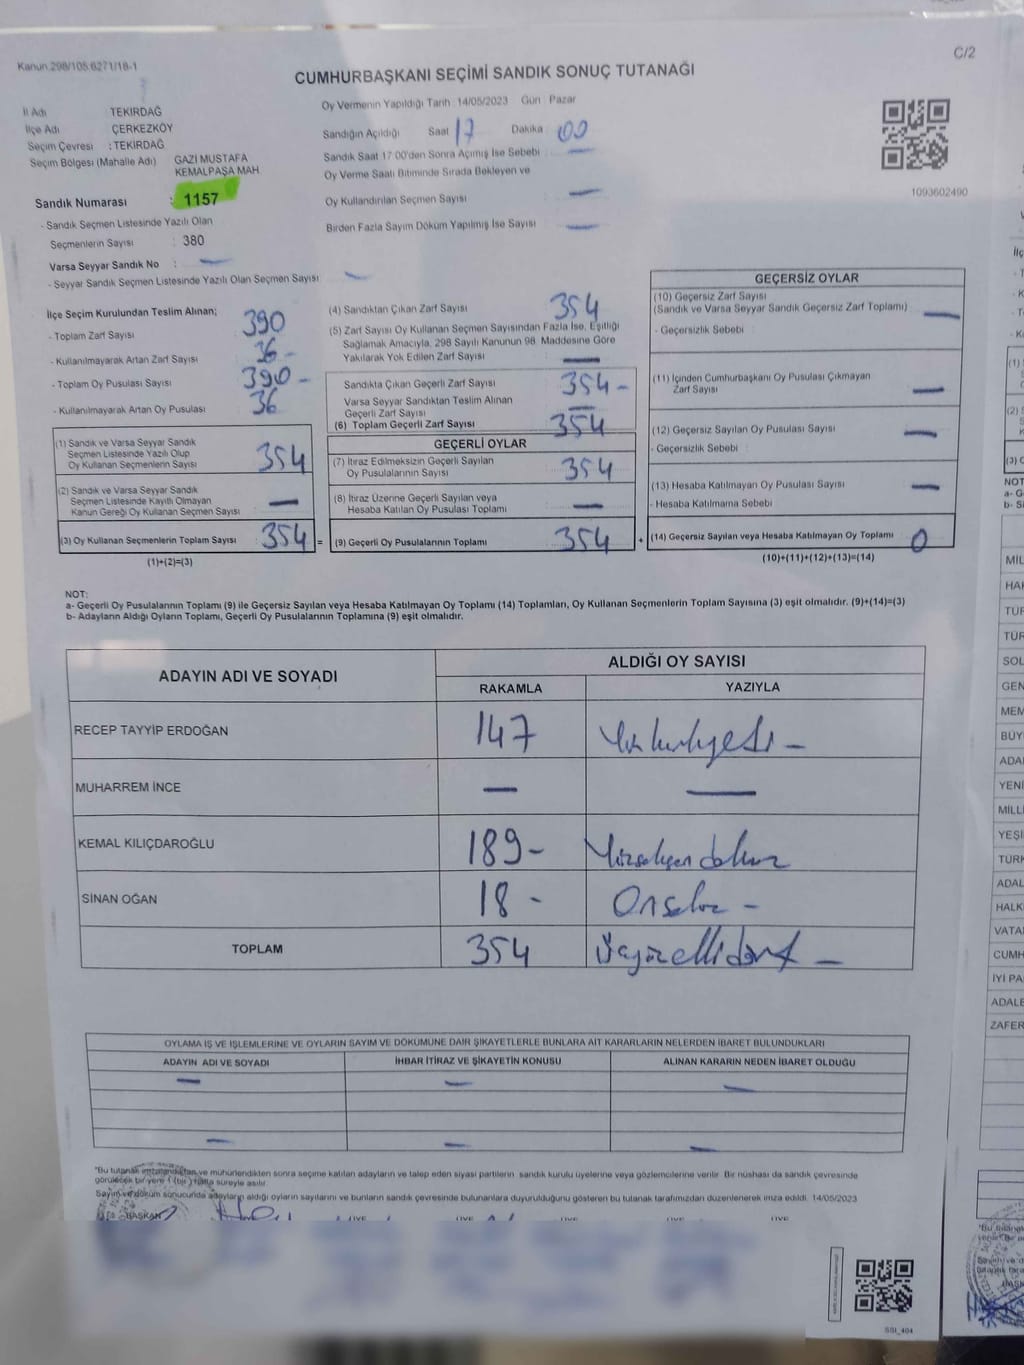 Kanun.298/105.6271/18-1
C/2
CUMHURBAŞKANI SEÇİMİ SANDIK SONUÇ TUTANAĞI
İl Adı : TEKİRDAĞ
İlçe Adı : ÇERKEZKÖY
Seçim Çevresi : TEKİRDAĞ
Seçim Bölgesi (Mahalle Adı) GAZİ MUSTAFA
KEMALPAŞA MAH.
Sandık Numarası : 1157
- Sandık Seçmen Listesinde Yazılı Olan
Seçmenlerin Sayısı : 380
Varsa Seyyar Sandık No : —
- Seyyar Sandık Seçmen Listesinde Yazılı Olan Seçmen Sayısı —
Oy Vermenin Yapıldığı Tarih : 14/05/2023 Gün : Pazar
Sandığın Açıldığı Saat 17 Dakika 00
Sandık Saat 17:00'den Sonra Açılmış İse Sebebi : —
Oy Verme Saati Bitiminde Sırada Bekleyen ve
Oy Kullandırılan Seçmen Sayısı —
Birden Fazla Sayım Döküm Yapılmış İse Sayısı —
1093602490
İlçe Seçim Kurulundan Teslim Alınan;
- Toplam Zarf Sayısı 390
- Kullanılmayarak Artan Zarf Sayısı 36 -
- Toplam Oy Pusulası Sayısı 390 -
- Kullanılmayarak Artan Oy Pusulası 36
(1) Sandık ve Varsa Seyyar Sandık
Seçmen Listesinde Yazılı Olup
Oy Kullanan Seçmenlerin Sayısı 354
(2) Sandık ve Varsa Seyyar Sandık
Seçmen Listesinde Kayıtlı Olmayan
Kanun Gereği Oy Kullanan Seçmen Sayısı —
(3) Oy Kullanan Seçmenlerin Toplam Sayısı 354 =
(1)+(2)=(3)
(4) Sandıktan Çıkan Zarf Sayısı 354
(5) Zarf Sayısı Oy Kullanan Seçmen Sayısından Fazla İse, Eşitliği
Sağlamak Amacıyla, 298 Sayılı Kanunun 98. Maddesine Göre
Yakılarak Yok Edilen Zarf Sayısı —
Sandıkta Çıkan Geçerli Zarf Sayısı 354 -
Varsa Seyyar Sandıktan Teslim Alınan
Geçerli Zarf Sayısı —
(6) Toplam Geçerli Zarf Sayısı 354
GEÇERLİ OYLAR
(7) İtiraz Edilmeksizin Geçerli Sayılan
Oy Pusulalarının Sayısı 354
(8) İtiraz Üzerine Geçerli Sayılan veya
Hesaba Katılan Oy Pusulası Toplamı —
(9) Geçerli Oy Pusulalarının Toplamı 354 +
GEÇERSİZ OYLAR
(10) Geçersiz Zarf Sayısı
(Sandık ve Varsa Seyyar Sandık Geçersiz Zarf Toplamı) —
- Geçersizlik Sebebi :
(11) İçinden Cumhurbaşkanı Oy Pusulası Çıkmayan
Zarf Sayısı —
(12) Geçersiz Sayılan Oy Pusulası Sayısı —
- Geçersizlik Sebebi :
(13) Hesaba Katılmayan Oy Pusulası Sayısı —
- Hesaba Katılmama Sebebi
(14) Geçersiz Sayılan veya Hesaba Katılmayan Oy Toplamı 0
(10)+(11)+(12)+(13)=(14)
NOT:
a- Geçerli Oy Pusulalarının Toplamı (9) ile Geçersiz Sayılan veya Hesaba Katılmayan Oy Toplamı (14) Toplamları, Oy Kullanan Seçmenlerin Toplam Sayısına (3) eşit olmalıdır. (9)+(14)=(3)
b- Adayların Aldığı Oyların Toplamı, Geçerli Oy Pusulalarının Toplamına (9) eşit olmalıdır.
ADAYIN ADI VE SOYADI
ALDIĞI OY SAYISI
RAKAMLA YAZIYLA
RECEP TAYYİP ERDOĞAN 147 Yüzkırkyedi —
MUHARREM İNCE — —
KEMAL KILIÇDAROĞLU 189- Yüzseksendokuz
SİNAN OĞAN 18 - Onsekiz -
TOPLAM 354 Üçyüzellidört —
OYLAMA İŞ VE İŞLEMLERİNE VE OYLARIN SAYIM VE DÖKÜMÜNE DAİR ŞİKAYETLERLE BUNLARA AİT KARARLARIN NELERDEN İBARET BULUNDUKLARI
ADAYIN ADI VE SOYADI İHBAR İTİRAZ VE ŞİKAYETİN KONUSU ALINAN KARARIN NEDEN İBARET OLDUĞU
— — —
— — —
"Bu tutanak imzalandıktan ve mühürlendikten sonra seçime katılan adayların ve talep eden siyasi partilerin sandık kurulu üyelerine veya gözlemcilerine verilir. Bir nüshası da sandık çevresinde
görülecek bir yere 1 (bir) hafta süreyle asılır.
Sayım ve döküm sonucunda adayların aldığı oyların sayılarını ve bunların sandık çevresinde bulunanlara duyurulduğunu gösteren bu tutanak tarafımızdan düzenlenerek imza edildi. 14/05/2023
BAŞKAN ÜYE ÜYE ÜYE ÜYE ÜYE
SSI_404